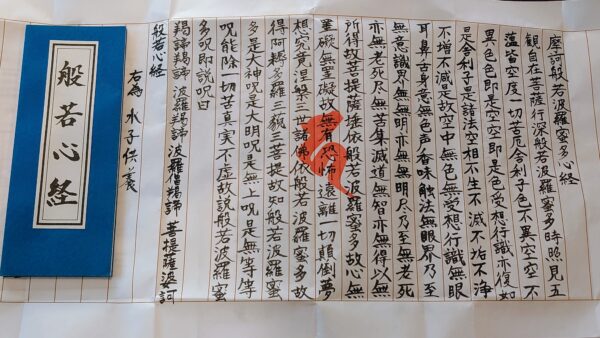 摩訶般若波羅蜜多心経
観自在菩薩行深般若波羅蜜多時照見五
蘊皆空度一切苦厄舎利子色不異空空不
異色色即是空空即是色受想行識亦復如
是舎利子是諸法空相不生不滅不垢不浄
不増不減是故空中無色無受想行識無眼
耳鼻舌身意無色声香味触法無眼界乃至
無意識界無無明亦無無明尽乃至無老死
亦無老死尽無苦集滅道無智亦無得以無
所得故菩提薩埵依般若波羅蜜多故心無
罣礙無罣礙故無有恐怖遠離一切顛倒夢
想究竟涅槃三世諸佛依般若波羅蜜多故
得阿耨多羅三藐三菩提故知般若波羅蜜
多是大神呪是大明呪是無上呪是無等等
呪能除一切苦真実不虚故説般若波羅蜜
多呪即説呪曰
羯諦羯諦 波羅羯諦 波羅僧羯諦 菩提薩婆訶
般若心経
右為 水子供養
般若心経